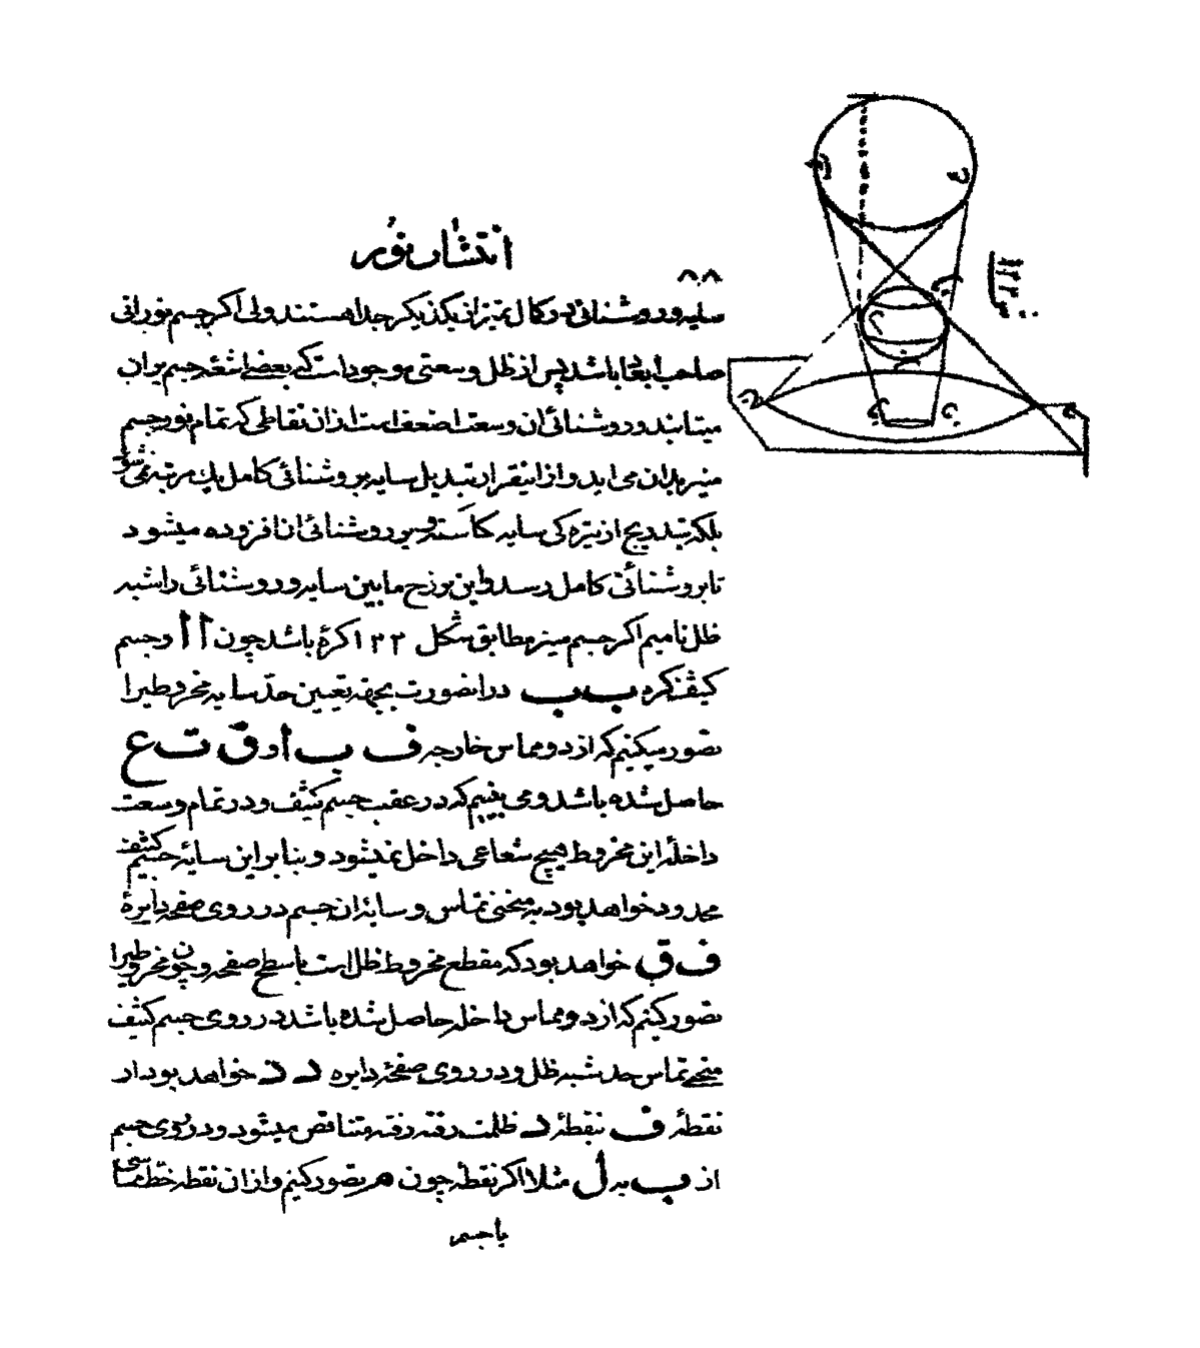 انتشار نور
۸۰۸
سایه و روشنائی بدو کمال تمیز از یکدیکر جدا هستند ولی اکر جسم نورانی
صاحب ابعاد باشد پس از ظل وسعتی موجود است که بعضی اشعهٔ جسم بران
میتابند و روشنائی ان وسعت اضعف است از ان نقاطی که تمام نور جسم
منیر بدان می اید و از اینقرار تبدیل سایه بروشنائی کامل یک مرتبه نمی شود
بلکه بتدریج از تیره کی سایه کاسته و بروشنائی ان افزوده میشود
تا بروشنائی کامل رسد و این برزخ مابین سایه و روشنائی را شبه
ظل نامیم اکر جسم منیر مطابق شکل ۱۲۳ کرهٔ باشد چون أ أ و جسم
کثیف کره ب ب در انصورت بجهة تعیین حدّ سایه مخروطی را
تصور میکنیم که از دو مماس خارجه ف ب ا و ق ت ع
حاصل شده باشد و می بینیم که در عقب جسم کثیف و در تمام وسعت
داخلهٔ این مخروط هیچ شعاعی داخل نمیشود و بنابر این سایهٔ جسم کثیف
محدود خواهد بود به منحنی تماس و سایهٔ ان جسم در روی صفحه دایرهٔ
ف ق خواهد بود که مقطع مخروط ظل است با سطح صفحه و چون مخروطی را
تصور کنیم که از دو مماس داخله حاصل شده باشد در روی جسم کثیف
منحنی تماس حد شبه ظل و در روی صفحهٔ دایره د د خواهد بود از
نقطهٔ ف بنقطهٔ د ظلمت رفته رفته متناقص میشود و در روی جسم
از ب به ل مثلا اکر نقطهٔ چون م تصور کنیم و از ان نقطه خط مماسی
با جسم